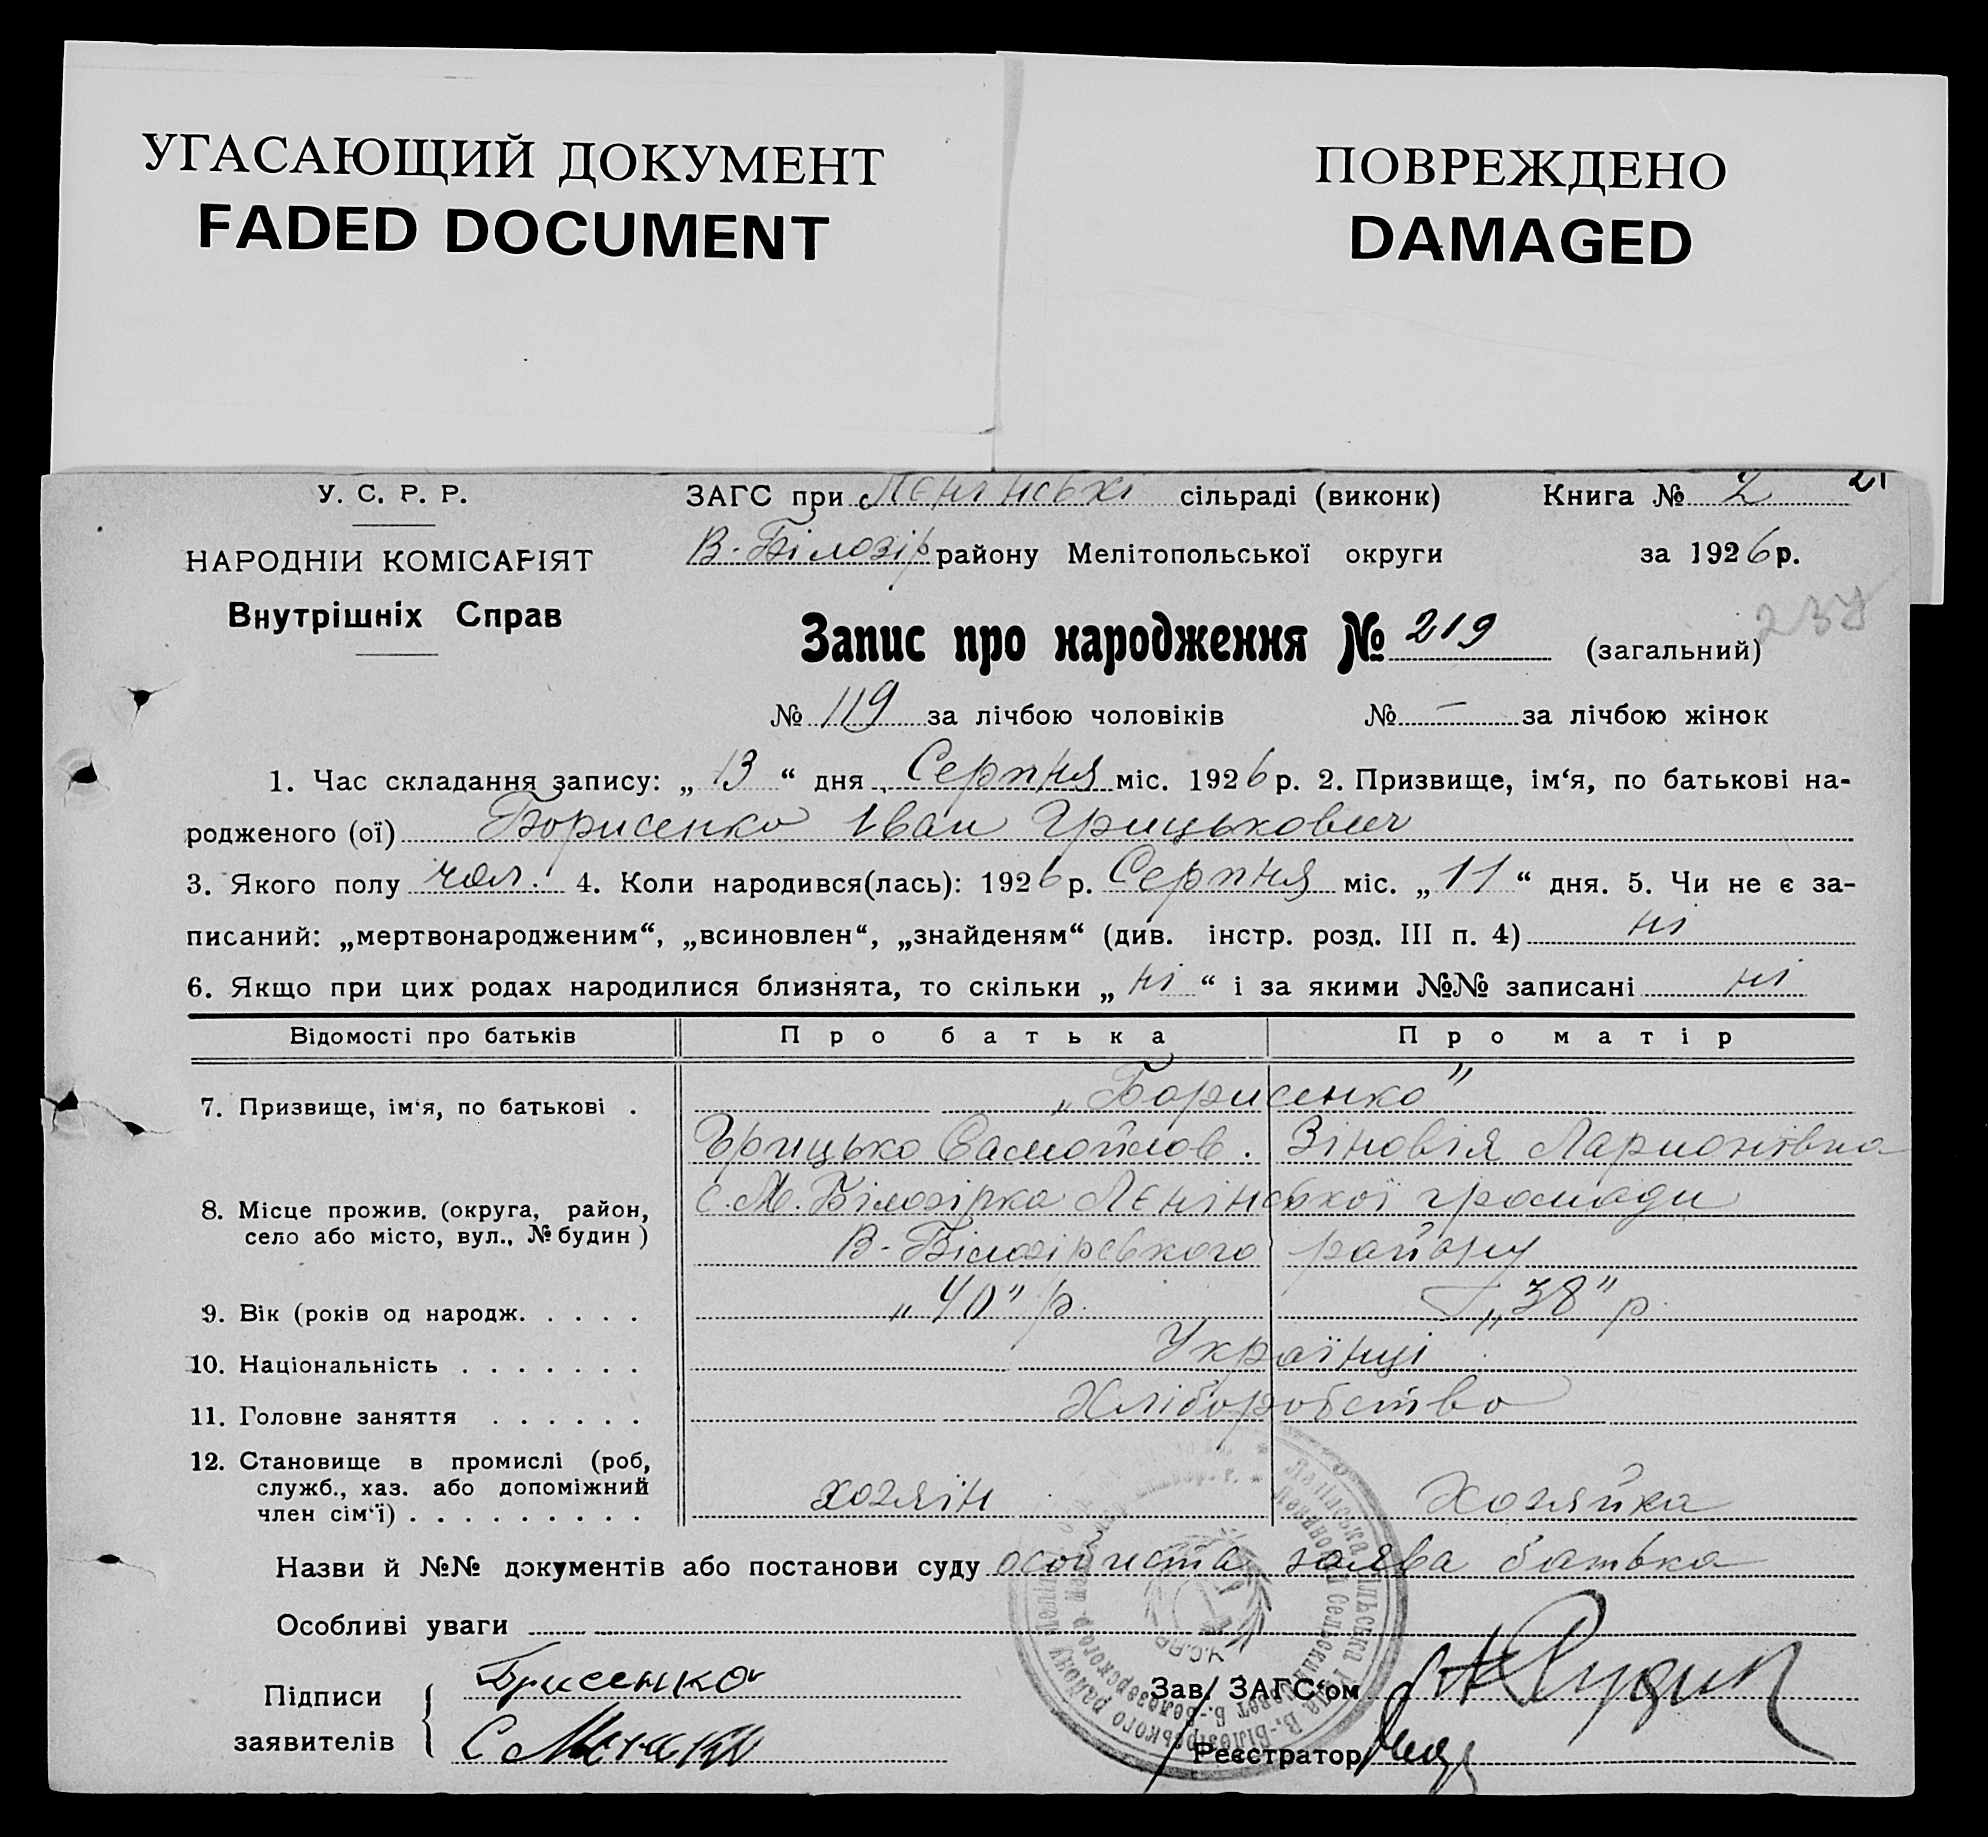 УГАСАЮЩИЙ ДОКУМЕНТ
FADED DOCUMENT
ПОВРЕЖДЕНО
DAMAGED
У. С. Р. Р.
ЗАГС при Ленінські сільраді (виконк) Книга № 2 21
В-Білозір району Мелітопольської округи за 1926 р.
НАРОДНІЙ КОМІСАРІЯТ
Внутрішніх Справ
Запис про народження № 219 (загальний)
№ 119 за лічбою чоловіків № — за лічбою жінок
1. Час складання запису: „ 13 “ дня Серпня міс. 1926 р. 2. Призвище, ім‘я, по батькові на-
родженого (ої) Борисенко Іван Грицькович
3. Якого полу чол. 4. Коли народився(лась): 1926 р. Серпня міс. „ 11 “ дня. 5. Чи не є за-
писаний: „мертвонародженим“, „всиновлен“, „знайденям“ (див. інстр. розд. III п. 4) ні
6. Якщо при цих родах народилися близнята, то скільки „ ні “ і за якими №№ записані ні
Відомості про батьків Про батька Про матір
7. Призвище, ім‘я, по батькові . „Борисенко”
Грицько Самойлов. Зіновія Ларионівна
8. Місце прожив. (округа, район, с. М. Білозірка Ленінської громади
село або місто, вул., № будин) В-Білозірського району
9. Вік (років од народж. . . . . „40” р. „38” р.
10. Національність . . . . . . . Українці
11. Головне заняття . . . . . . Хліборобство
12. Становище в промислі (роб,
служб., хаз. або допоміжний хозяїн Хозяйка
член сім‘ї) . . . . . . . . .
Назви й №№ документів або постанови суду особиста заява батька
Особливі уваги
Підписи
заявителів
Брисенко
Зав/ ЗАГС‘ом
Реєстратор